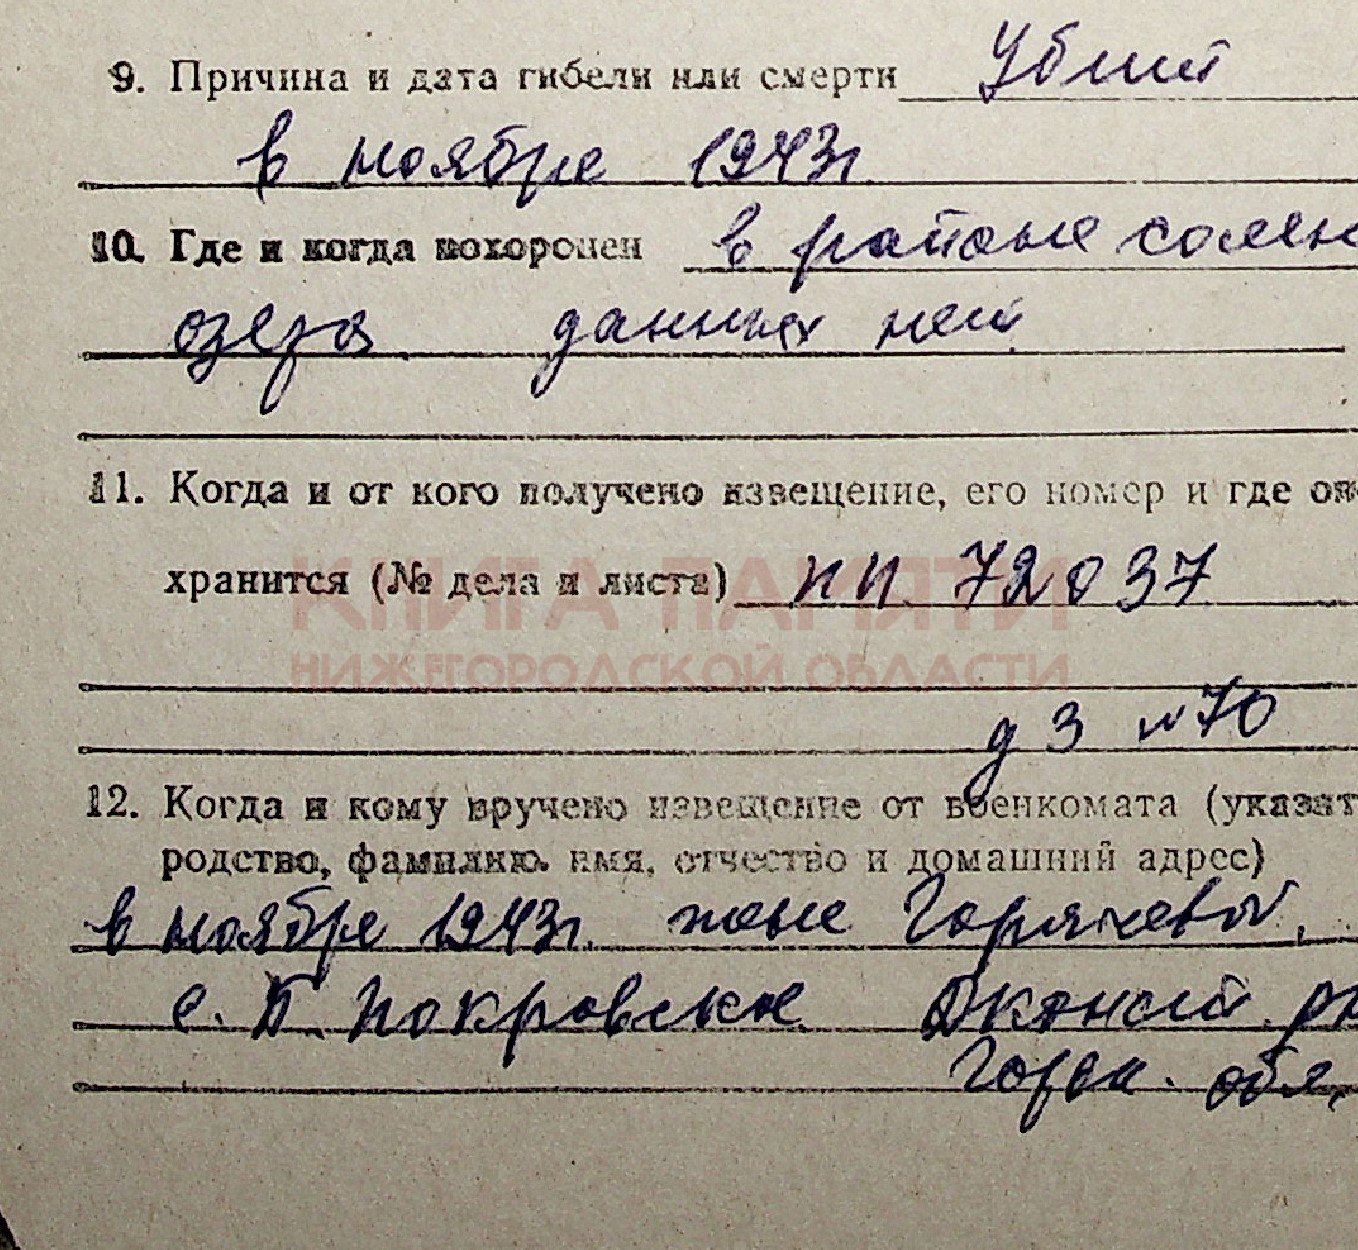 9. Причина и дата гибели или смерти Убит
в ноябре 1943г.
10. Где и когда похоронен в районе солен
озера данных нет
11. Когда и от кого получено извещение, его номер и где он
хранится (№ дела и листа) пп 72037
КНИГА ПАМЯТИ
НИЖЕГОРОДСКОЙ ОБЛАСТИ
д 3 №70
12. Когда и кому вручено извещение от военкомата (указат
родство, фамилию, имя, отчество и домашний адрес)
в ноябре 1943г. жене Горячевой,
с. Б. Покровское рн
Горьк. обл,